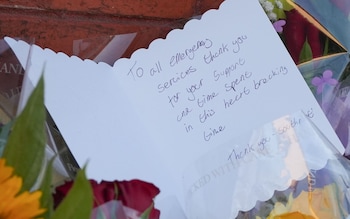 To all emergency
services thank you
for your support
and time spent
in this heart breaking
time
Thank you